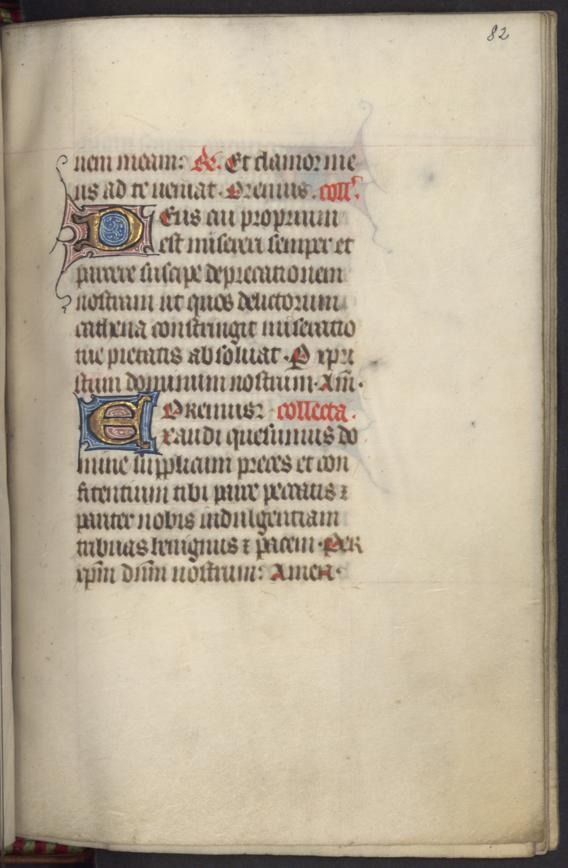 82
nem meam: R. Et clamor me
us ad te veniat. Oremus. coll'.
Deus cui proprium
est misereri semper et
parcere suscipe deprecationem
nostram ut quos delictorum
cathena constringit miseratio
tue pietatis absoluat. P xpri
stum dominum nostrum. Am̄.
Oremus collecta.
Exaudi quesumus do
mine supplicum preces et con
fitentium tibi parce peccatis ⁊
pariter nobis indulgentiam
tribuas benignus ⁊ pacem. Per
xp̄m dn̄m nostrum: Amen.